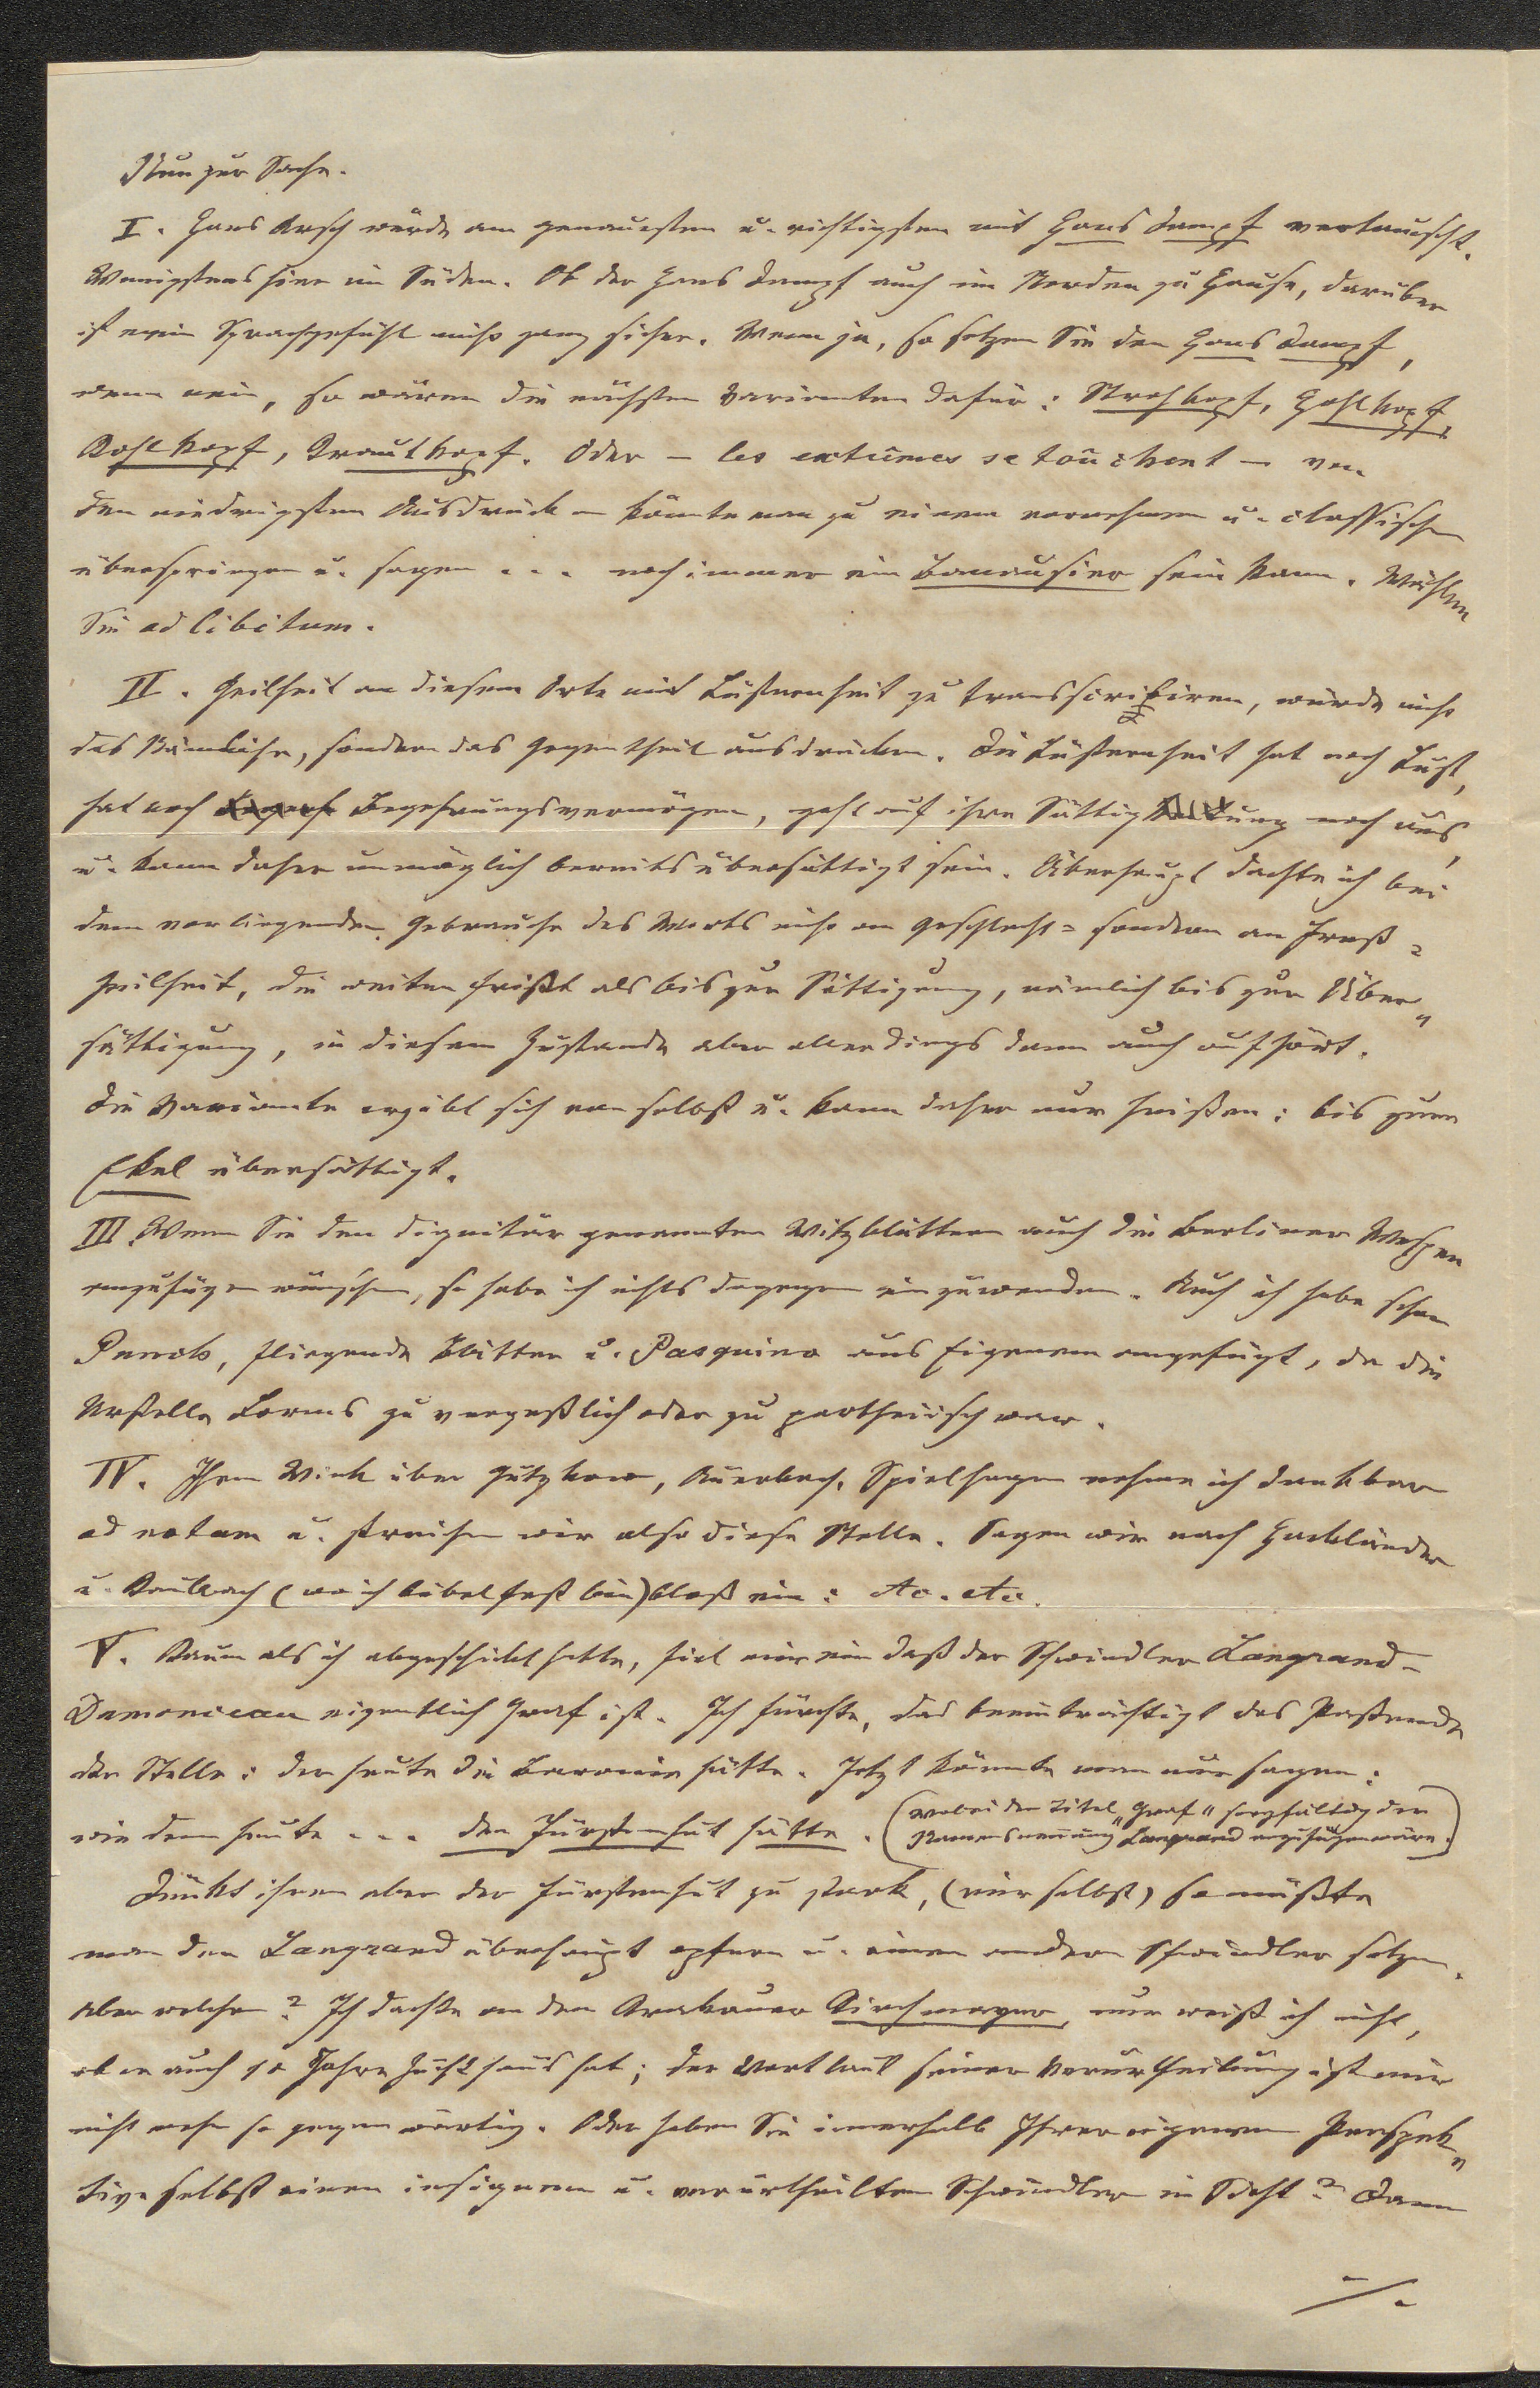 Nun zur Sache.
I. Hans Arsch würde am genauesten u. richtigsten mit Hans Dampf vertauscht.
Wenigstens hier im Süden. Ob der Hans Dampf auch im Norden zu Hause, darüber
ist mein Sprachgefühl nicht ganz sicher. Wenn ja, so setzen Sie den Hans Dampf,
wenn nein, so wären die nächsten Varianten dafür: Strohkopf, Hohlkopf,
Kohlkopf, Krautkopf. Oder – les extrêmes se touchent – von
den niedrigsten Ausdrücken könnte man zu einem vornehmen u. classischen
überspringen u. sagen ... noch immer ein Banausier sein kann. Wählen
Sie ad libitum.
II. Geilheit an diesem Orte mit Lüsternheit zu transscribiren, würde nicht
das Nämliche, sondern das Gegentheil ausdrücken. Die Lüsternheit hat noch Lust,
hat noch Begehrungsvermögen, geht auf ihre Sättigung noch aus,
u. kann daher unmöglich bereits übersättigt sein. Überhaupt dachte ich bei
dem vorliegenden Gebrauche des Worts nicht an Geschlecht= sondern an Freß=
geilheit, die weiter frißt als bis zur Sättigung, nämlich bis zur Über„
sättigung, in diesem Zustande aber allerdings dann auch aufhört.
Die Variante ergibt sich von selbst u. kann daher nur heißen: bis zum
Ekel übersättigt.
III. Wenn Sie den dignitär genannten Witzblättern auch die Berliner Wespen
anzufügen wünschen, so habe ich nichts dagegen einzuwenden. Auch ich habe schon
Punch, fliegende Blätter u. Pasquino aus Eigenem angefügt, da die
Urstelle Lorms zu vergeßlich oder zu partheiisch war.
IV. Ihren Wink über Gutzkow, Auerbach, Spielhagen nehme ich dankbar
ad notam u. streichen wir also diese Stelle. Sagen wir nach Hackländer
u. Kaulbach (wo ich bibelfest bin) bloß ein: etc. etc.
V. Kaum als ich abgeschickt hatte, fiel mir ein daß der Schwindler Langrand-
Dumonceau eigentlich Graf ist. Ich fürchte, das beeinträchtigt das Passende
der Stelle: der heute die Baronie hätte. Jetzt könnte man nur sagen:
wie denn heute ... den Fürstenhut hätte. (Wobei der Titel „Graf“ sorgfältig der
Namensnennung Langrand anzufügen wäre.)
Dünkt ihnen aber der Fürstenhut zu stark, (mir selbst) so müßte
man den Langrand überhaupt opfern u. einen andern Schwindler setzen.
Aber welchen? Ich dachte an den Krakauer Kirchmayer, nur weiß ich nicht,
ob er auch 10 Jahre Zuchthaus hat; der Wortlaut seiner Verurtheilung ist mir
nicht mehr so gegenwärtig. Oder haben Sie innerhalb Ihrer eigenen Perspek„
tive selbst einen insignen u. verurtheilten Schwindler in Sicht? Dann
./.